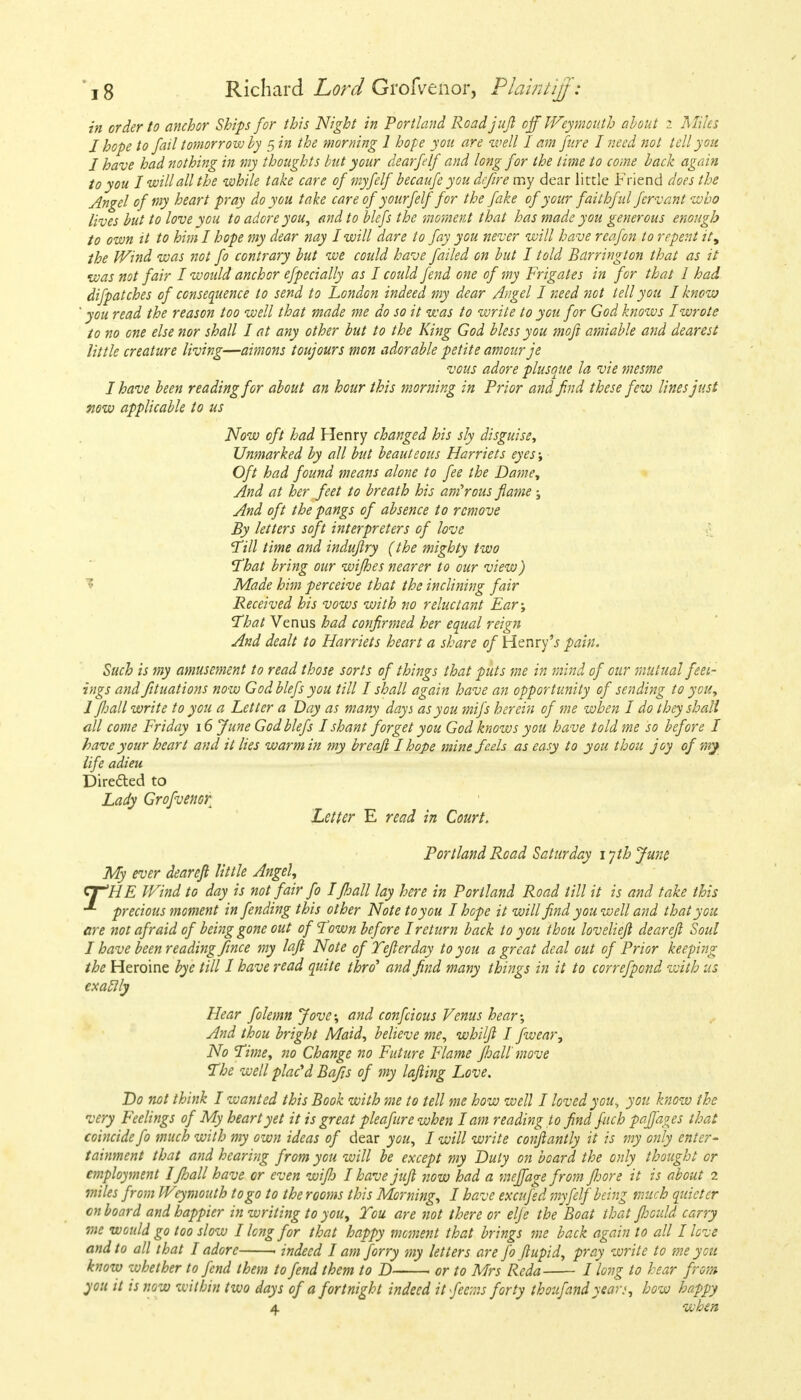 18 Richard Lord Grosvenor, Plaintiff:
in order to anchor Ships for this Night in Portland Road juſt off Weymouth about 2 Miles
I hope to ſail tomorrow by 5 in the morning I hope you are well I am ſure I need not tell you
I have had nothing in my thoughts but your dearſelf and long for the time to come back again
to you I will all the while take care of myſelf becauſe you deſire my dear little Friend does the
Angel of my heart pray do you take care of yourſelf for the ſake of your faithful ſervant who
lives but to love you to adore you, and to bleſs the moment that has made you generous enough
to own it to him I hope my dear nay I will dare to ſay you never will have reaſon to repent it,
the Wind was not ſo contrary but we could have ſailed on but I told Barrington that as it
was not fair I would anchor eſpecially as I could ſend one of my Frigates in for that I had
diſpatches of consequence to send to London indeed my dear Angel I need not tell you I know
you read the reason too well that made me do so it was to write to you for God knows I wrote
to no one else nor shall I at any other but to the King God bless you moſt amiable and dearest
little creature living—aimons toujours mon adorable petite amour je
vous adore plusque la vie mesme
I have been reading for about an hour this morning in Prior and find these few lines just
now applicable to us
Now oft had Henry changed his sly disguise,
Unmarked by all but beauteous Harriets eyes;
Oft had found means alone to ſee the Dame,
And at her feet to breath his am'rous flame;
And oft the pangs of absence to remove
By letters soft interpreters of love
Till time and induſtry (the mighty two
That bring our wiſhes nearer to our view)
Made him perceive that the inclining fair
Received his vows with no reluctant Ear;
That Venus had confirmed her equal reign
And dealt to Harriets heart a share of Henry's pain.
Such is my amusement to read those sorts of things that puts me in mind of our mutual feel-
ings and ſituations now God bleſs you till I shall again have an opportunity of sending to you,
I ſhall write to you a Letter a Day as many days as you miſs herein of me when I do they shall
all come Friday 16 June God bleſs I shant forget you God knows you have told me so before I
have your heart and it lies warm in my breaſt I hope mine feels as easy to you thou joy of my
life adieu
Directed to
Lady Groſvenor.
Letter E read in Court.
Portland Road Saturday 17th June
My ever deareſt little Angel,
THE Wind to day is not fair ſo I ſhall lay here in Portland Road till it is and take this
precious moment in ſending this other Note to you I hope it will find you well and that you
are not afraid of being gone out of Town before I return back to you thou lovelieſt deareſt Soul
I have been reading ſince my laſt Note of Yeſterday to you a great deal out of Prior keeping
the Heroine bye till I have read quite thro' and find many things in it to correſpond with us
exactly
Hear ſolemn Jove; and conſcious Venus hear;
And thou bright Maid, believe me, whilſt I ſwear,
No Time, no Change no Future Flame ſhall move
The well plac'd Baſis of my laſting Love.
Do not think I wanted this Book with me to tell me how well I loved you, you know the
very Feelings of My heart yet it is great pleaſure when I am reading to find ſuch paſſages that
coincide ſo much with my own ideas of dear you, I will write conſtantly it is my only enter-
tainment that and hearing from you will be except my Duty on board the only thought or
employment I ſhall have or even wiſh I have juſt now had a meſſage from ſhore it is about 2
miles from Weymouth to go to the rooms this Morning, I have excuſed myſelf being much quieter
on board and happier in writing to you, You are not there or elſe the Boat that ſhould carry
me would go too slow I long for that happy moment that brings me back again to all I love
and to all that I adore—— indeed I am ſorry my letters are ſo ſtupid, pray write to me you
know whether to ſend them to ſend them to D—— or to Mrs Reda—— I long to hear from
you it is now within two days of a fortnight indeed it ſeems forty thouſand years, how happy
4 when